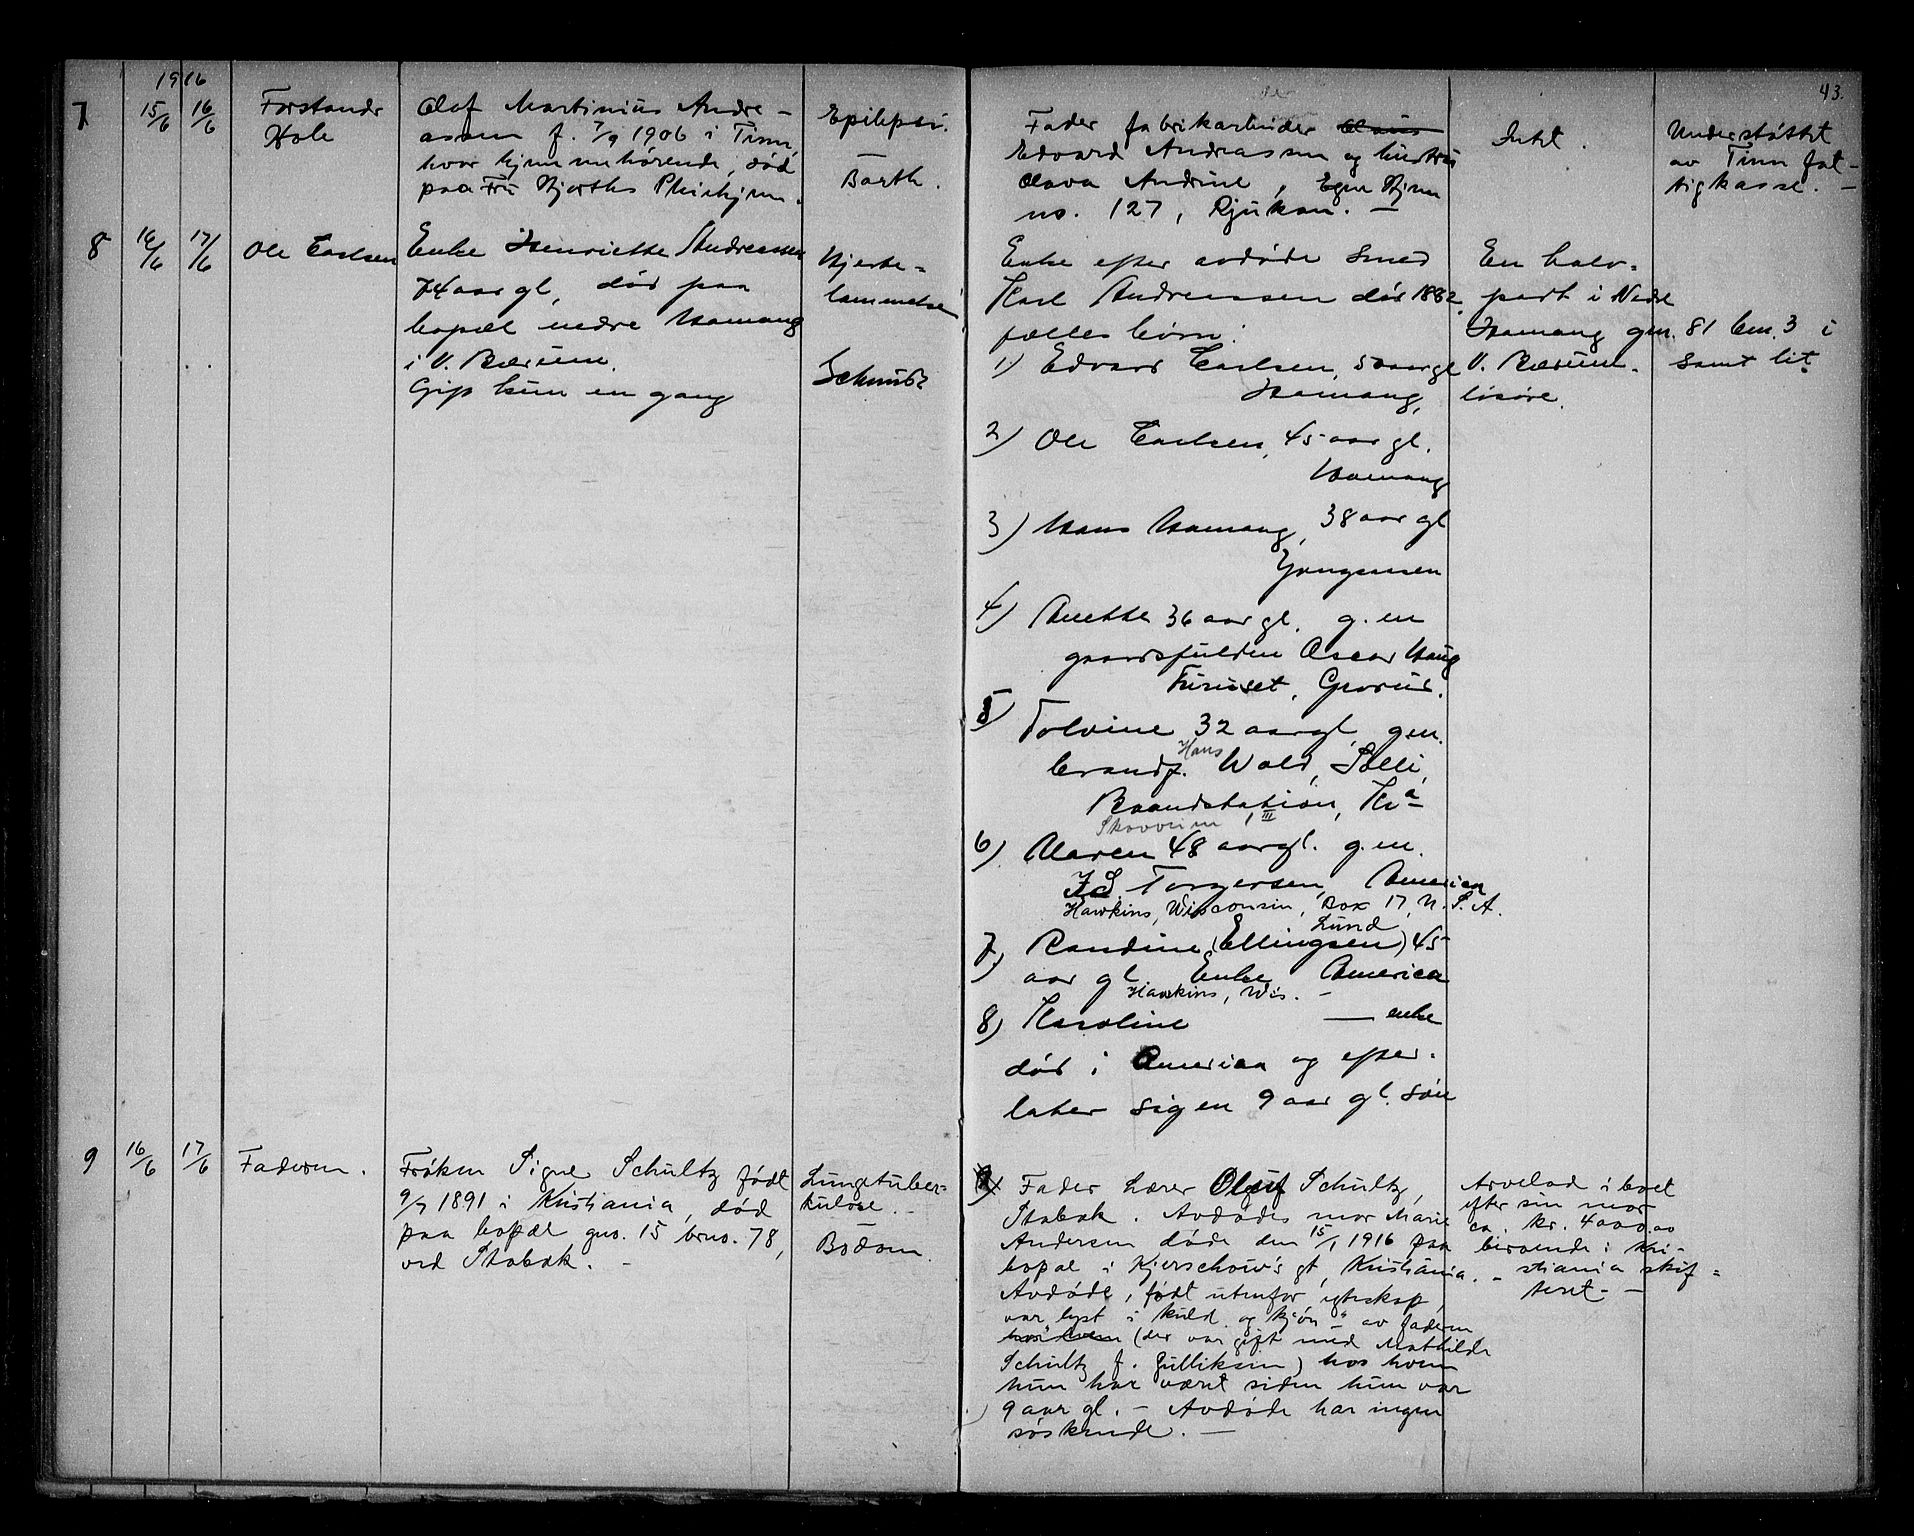 1916
43.
7
15/6
16/6
Forstander
Hole
Olaf Martinius Andre-
assen f. 7/9 1906 i Tinn,
hvor hjemmehørende, død
paa Fru Hjorths Pleiehjem.
Epilepsi.
Barth.
Fader fabrikarbeider
Edvard Andreassen og hustru
Olava Andrine, Egne Hjem
no. 127, Rjukan. —
Intet.
Understøttet
av Tinn fat-
tigkasse. —
8
16/6
17/6
Ole Carlsen
Enke Henriette Andreassen
74 aar gl, død paa
bopæl nedre Hamang
i V. Bærum.
Gift kun en gang
Hjerte-
lammelse
Schmidt
Enke efter avdøde Smed
Karl Andreassen død 1882,
fælles børn:
1) Edvard Carlsen, 50 aar gl
Hamang,
2) Ole Carlsen, 45 aar gl.
Hamang
3) Hans Hamang, 38 aar gl
4) Anette 36 aar gl. g. m
Oscar Haug
Furuset, Grorud.
5) Tolvine 32 aar gl, g.m.
Hans
brandf. Wold, Solli,
Brandstation, Kr.a
III
6) Maren 48 aar gl. g. m.
J S Torgersen, America
Hawkins, Wisconsin, Box 17, U. S. A.
Lund
7) Randine (Ellingsen) 45
aar gl Enke America
Hawkins, Wis. —
8) Karoline — enke
død i America og efter-
later sig en 9 aar gl. søn
En halv-
part i Nedre
Hamang gn. 81 bn. 3 i
V. Bærum. samt lit
løsøre.
9
16/6
17/6
Faderen.
Frøken Signe Schultz født
9/7 1891 i Kristiania, død
paa bopæl gno. 15 brno. 78,
ved Stabæk. —
Lungetuber-
kulose. —
Bødom
Fader Lærer Oluf Schultz,
Stabæk. Avdødes mor Marie
Andersen døde den 15/1 1916 paa
bopæl i Kjerschow's gt, Kristiania. —
Avdøde, født utenfor egteskap,
var lyst i "kuld og kjøn" av faderen
hos hvem (der var gift med Mathilde
Schultz f. Gulliksen) hos hvem
hun har været siden hun var
9 aar gl. — Avdøde har ingen
søskende. —
Arvelod i boet
efter sin mor
ca. kr. 4000.00
beroende i Kri-
stiania skif-
teret. —